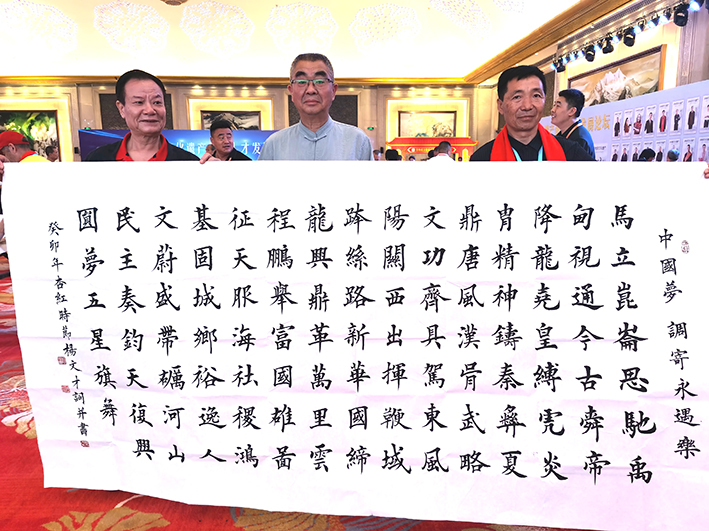 中國夢 調寄永遇樂
馬立崑崙思馳禹
甸視通今古舜帝
降龍堯皇縛虎炎
胄精神鑄秦彝夏
鼎唐風漢骨武略
文功齊具駕東風
陽關西出揮鞭城
絲路新華國締
龍興鼎革萬里雲
程鵬舉富國雄啚
征天服海社稷鴻
基固城鄉裕逸人
文蔚盛帶礪河山
民主奏鈞天復興
圓夢五星旗舞
癸卯年杏紅時節楊文才詞并書
论坛